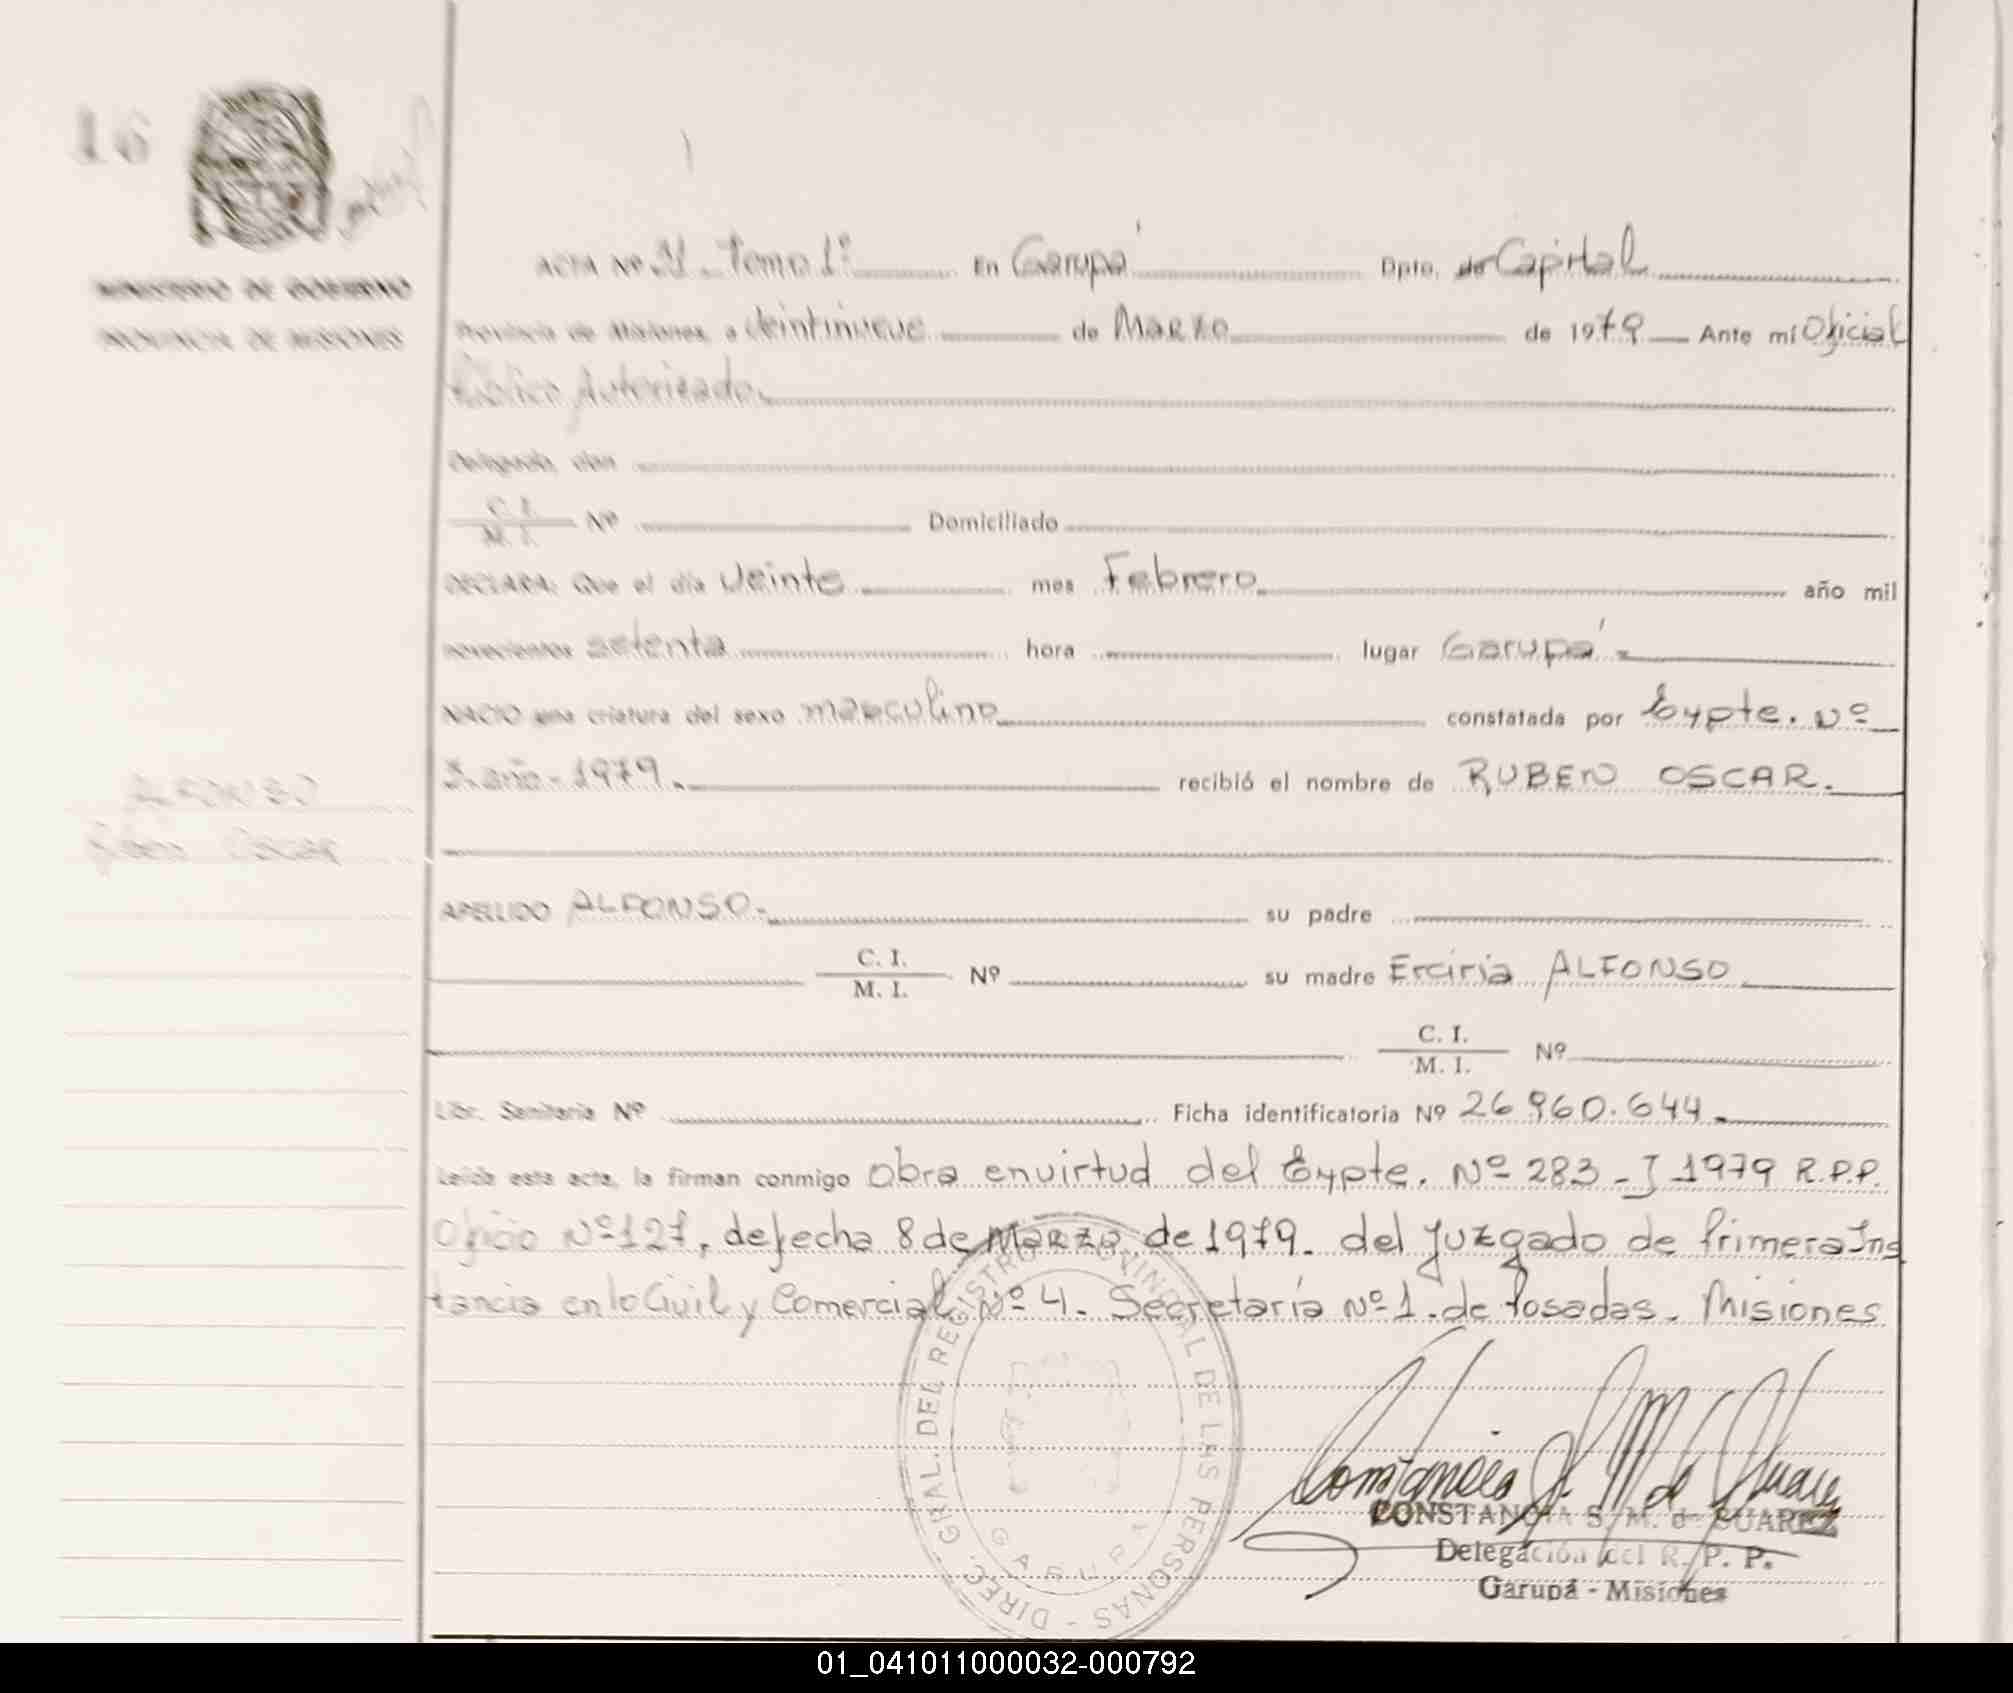 16
MINISTERIO DE GOBIERNO
PROVINCIA DE MISIONES
ACTA Nº 31 - Tomo 1º En Garupá Dpto. de Capital
Provincia de Misiones, a Veintinueve de Marzo de 1979 Ante mí Oficial
Público Autorizado.
Delegado, don
C. I.
M. I. Nº Domiciliado
DECLARA: Que el día Veinte mes Febrero año mil
novecientos setenta hora lugar Garupá -
NACIO una criatura del sexo masculino constatada por Eypte. Nº
3. año - 1979. recibió el nombre de RUBEN OSCAR.
ALFONSO
Ruben OSCAR
APELLIDO ALFONSO - su padre
C. I.
M. I. Nº su madre Erciria ALFONSO
C. I.
M. I. Nº
Libr. Sanitaria Nº Ficha identificatoria Nº 26 960.644 -
Leída esta acta, la firman conmigo Obra envirtud del Eypte. Nº 283 - J 1979 R.P.P.
Oficio Nº 127, de fecha 8 de Marzo de 1979. del Juzgado de Primera Ins
tancia en lo Civil y Comercial Nº 4. Secretaría Nº 1. de Posadas. Misiones
DIREC. GRAL. DEL REGISTRO PROVINCIAL DE LAS PERSONAS -
GARUPA
CONSTANCIA S. M. de SUAREZ
Delegación del R. P. P.
Garupá - Misiones
01_041011000032-000792